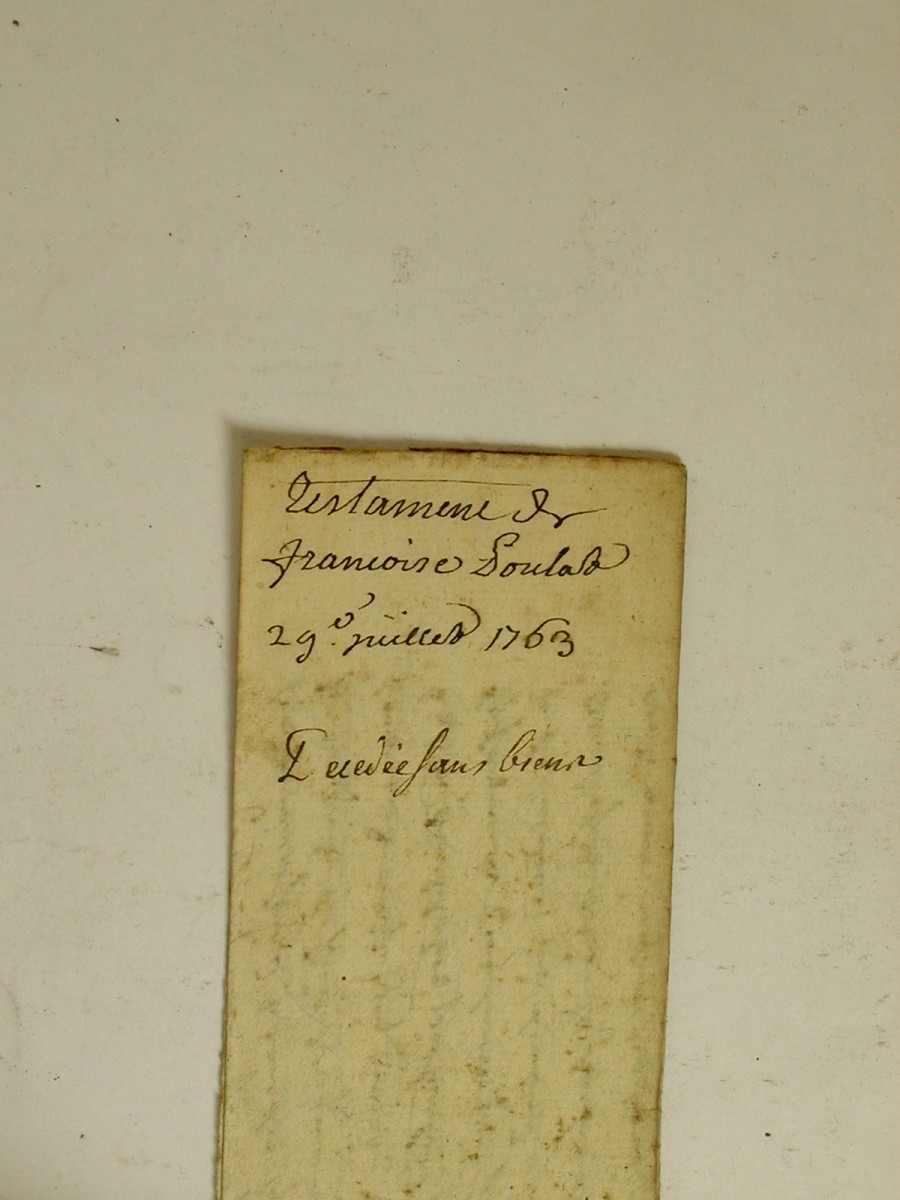 Testament de
francoise Poulat
29e juillet 1763
Decedée sans biens